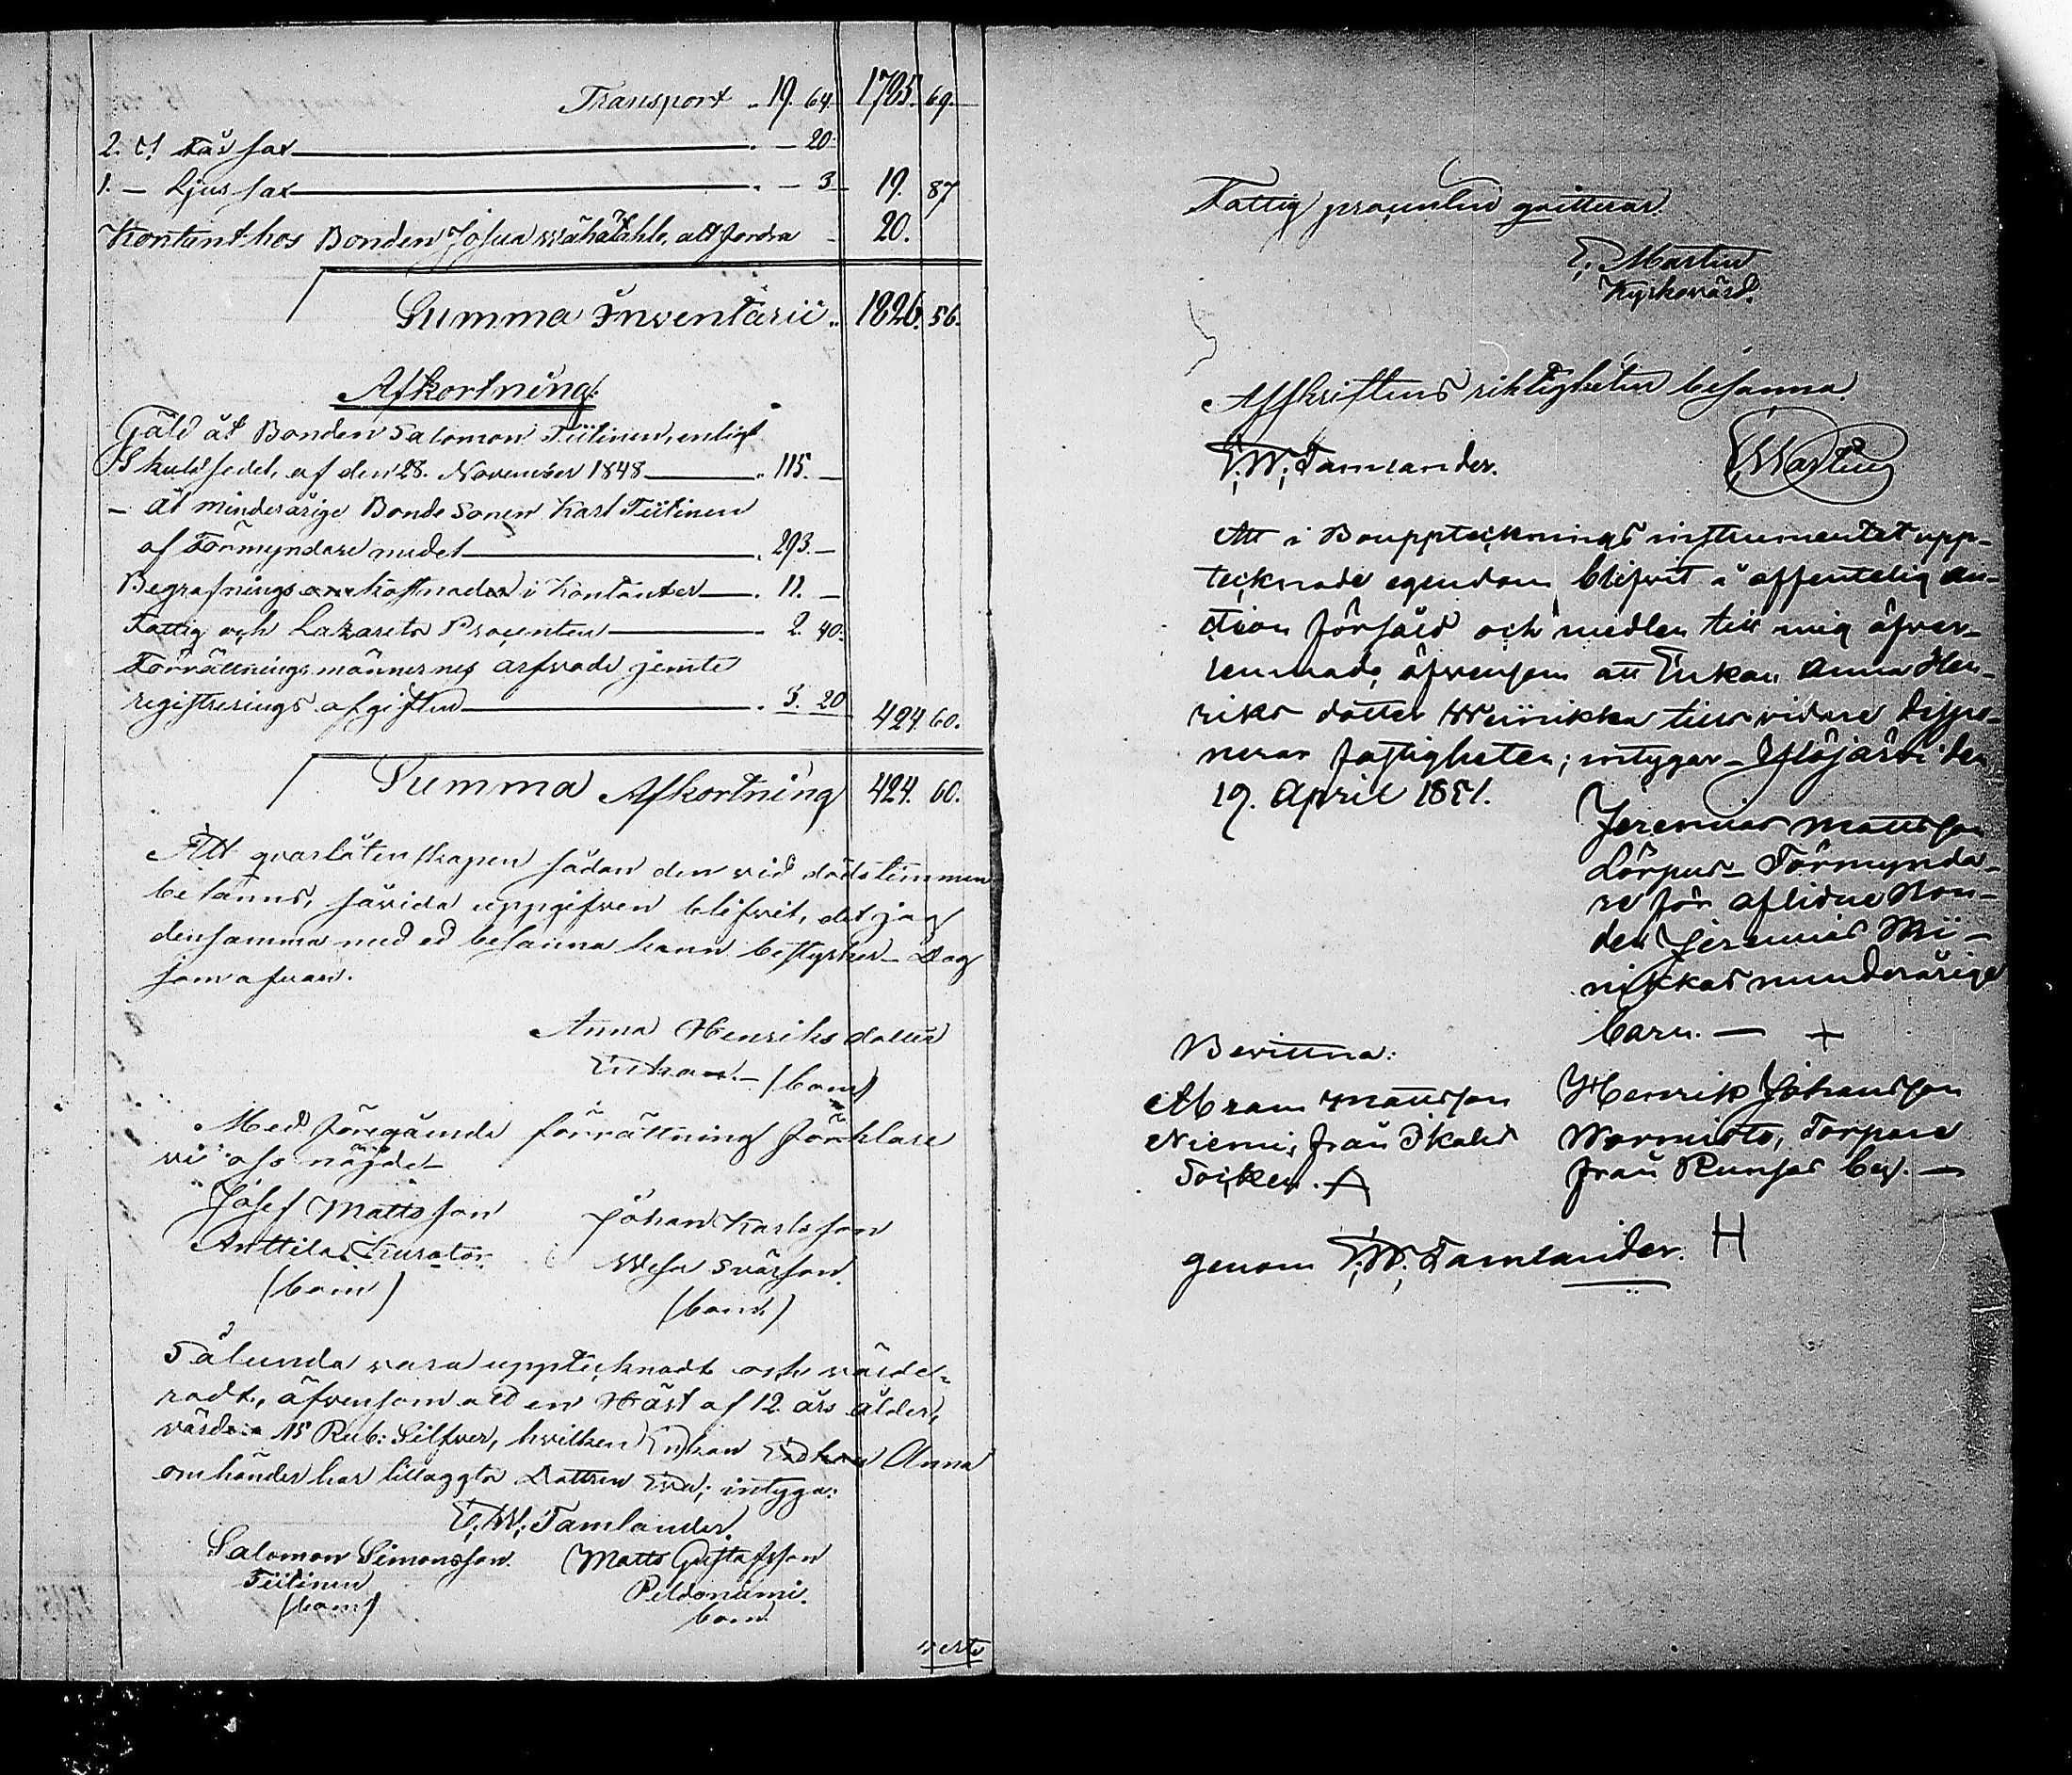 Transport .. 19. 64. 1785. 69.
2. st Får sax . — 20.
1. — Ljus sax . — 3. 19. 87
Kontant hos Bonden Josua Wähätahlo, att fordra — 20.
Summa Inventarii .. 1826. 56.
Afkortning:
Gäld åt Bonden Salomon Tiitinen, enligt
Skuldsedel, af den 28. November 1848 . 115. —
— åt minderårige Bonde Sonen Karl Tiitinen
af Förmyndare medel . 293. —
Begrafnings kostnader i Kontanter . 11. —
Fattig och Lazaretts Procenten . 2. 40.
Förrättningsmännernes arfvode jemte
registrerings afgiften . 3. 20 424. 60.
Summa Afkortning 424. 60.
Att qvarlåtenskapen sådan den vid dödstimmen
befanns, såvida uppgifven blifvit, det jag
densamma med ed besanna kann bestyrker — Dag
som ofvan.
Anna Henriksdotter
Enkan. — (bom)
Med föregående förrättning förklare
vi oss nöjde —
Josef Mattsson Johan Karlsson
Anttila, Kurator Wesa svärson.
(bom) (bom.)
Sålunda vara upptecknadt och värde-
radt, äfvensom att en Häst af 12. års ålder,
värd 15 Rub: Silfver, hvilken Enkan Anna
omhänder har tillaggts Dottren Eva; intyga:
E. W. Tamlander.
Salomon Simonsson Matts Gustafsson
Tiitinen Peldoniemi.
(bom) bom.
verte
Fattig procenten qvitteras.
E. Martin
Kyrkovärd.
Afskriftens riktigheten besanna.
E. W. Tamlander. E Martin
Att i Bouppteckningsinstrumentet upp-
tecknade egendom blifvit å offentelig Au-
ction försåld och medlen till mig öfver-
lemnade, äfvensom att Enkan Anna Hen-
riks dotter Wiinikka tillsvidare dispo-
nerar fastigheten; intygar — Ylöjärvi den
19. April 1851.
Jeremias Mattsson
Lörpus — Förmynda-
re för aflidne Bon-
den Jeremias Wii-
nikkas minderårige
barn. — +
Bevittna:
Abram Mattsson Henrik Johansson
Niemi, från Ikalis Wormisto, Torpare
Socken. A från Runsas by. —
genom E. W. Tamlander. H